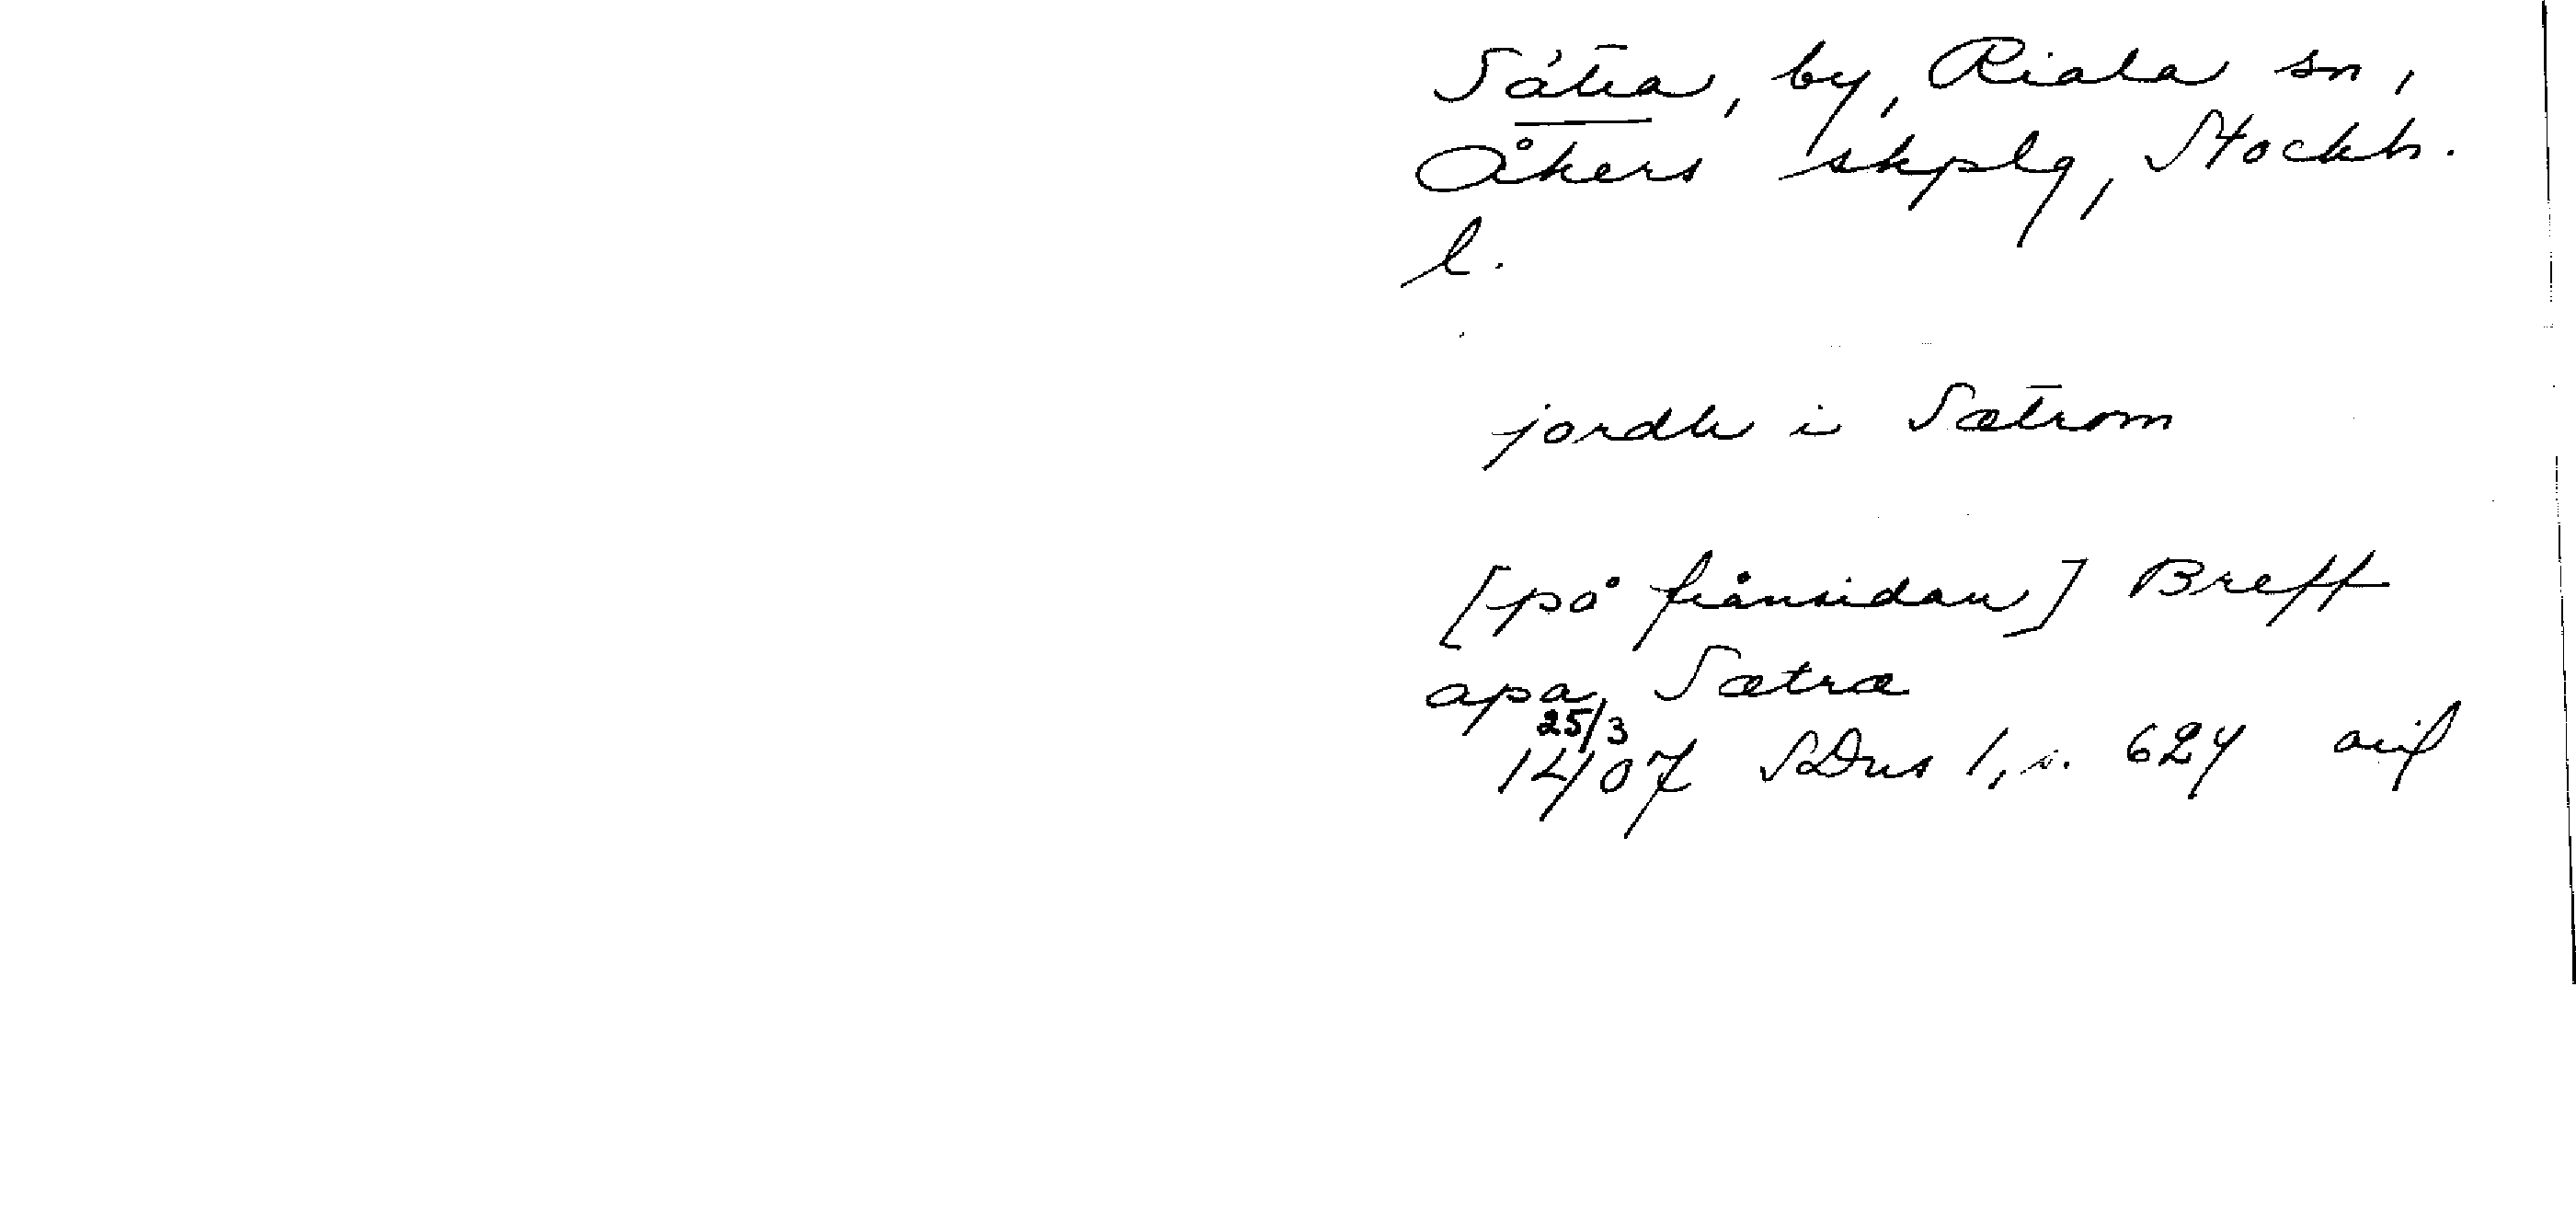 Sätra, by, Riala sn,
Åkers skplg, Stockh.
l.
jordh i Sætrom
[på frånsidan] Breff
apa Sætræ
25/3
1407 SDns 1, s. 624 avil